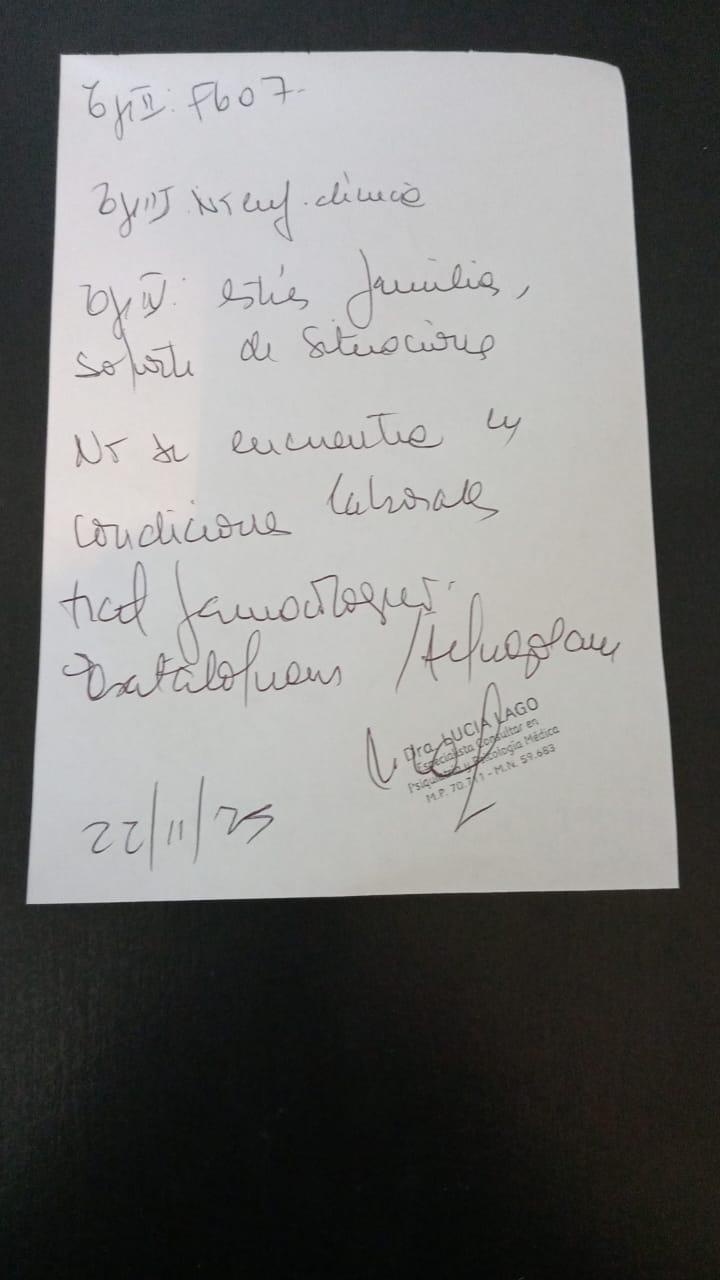 Eje II: F607.
Eje III No enf. clínica
Eje IV: estrés familia,
soporte de situaciones
No se encuentra en
condiciones laborales
trat farmacologico.
Escitalopram /
Dra. LUCIA LAGO
Especialista Consultor en
Psiquiatría y Psicología Médica
M.P. 70.711 - M.N. 59.683
22/11/25